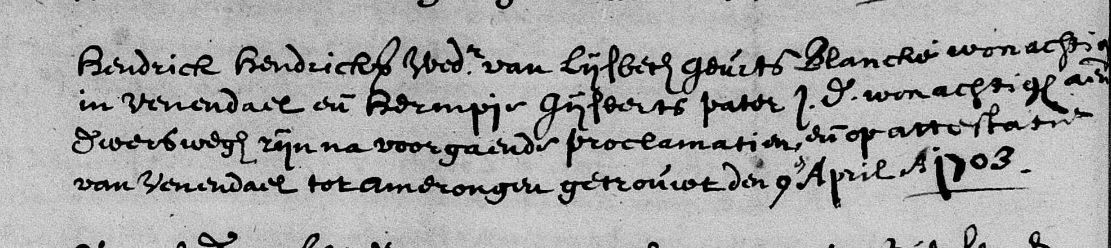 Hendrick Hendricks Wed.r van Lijsbeth Geurts Blancke wonachtig
in Venendael en̄ Hermpje Gijsberts pater J. d. wonachtigh aen
dwerswegh zijn na voorgaende proclamatien, en̄ op attestatie
van Venendael tot Amerongen getrouwt den 9 April A 1703.